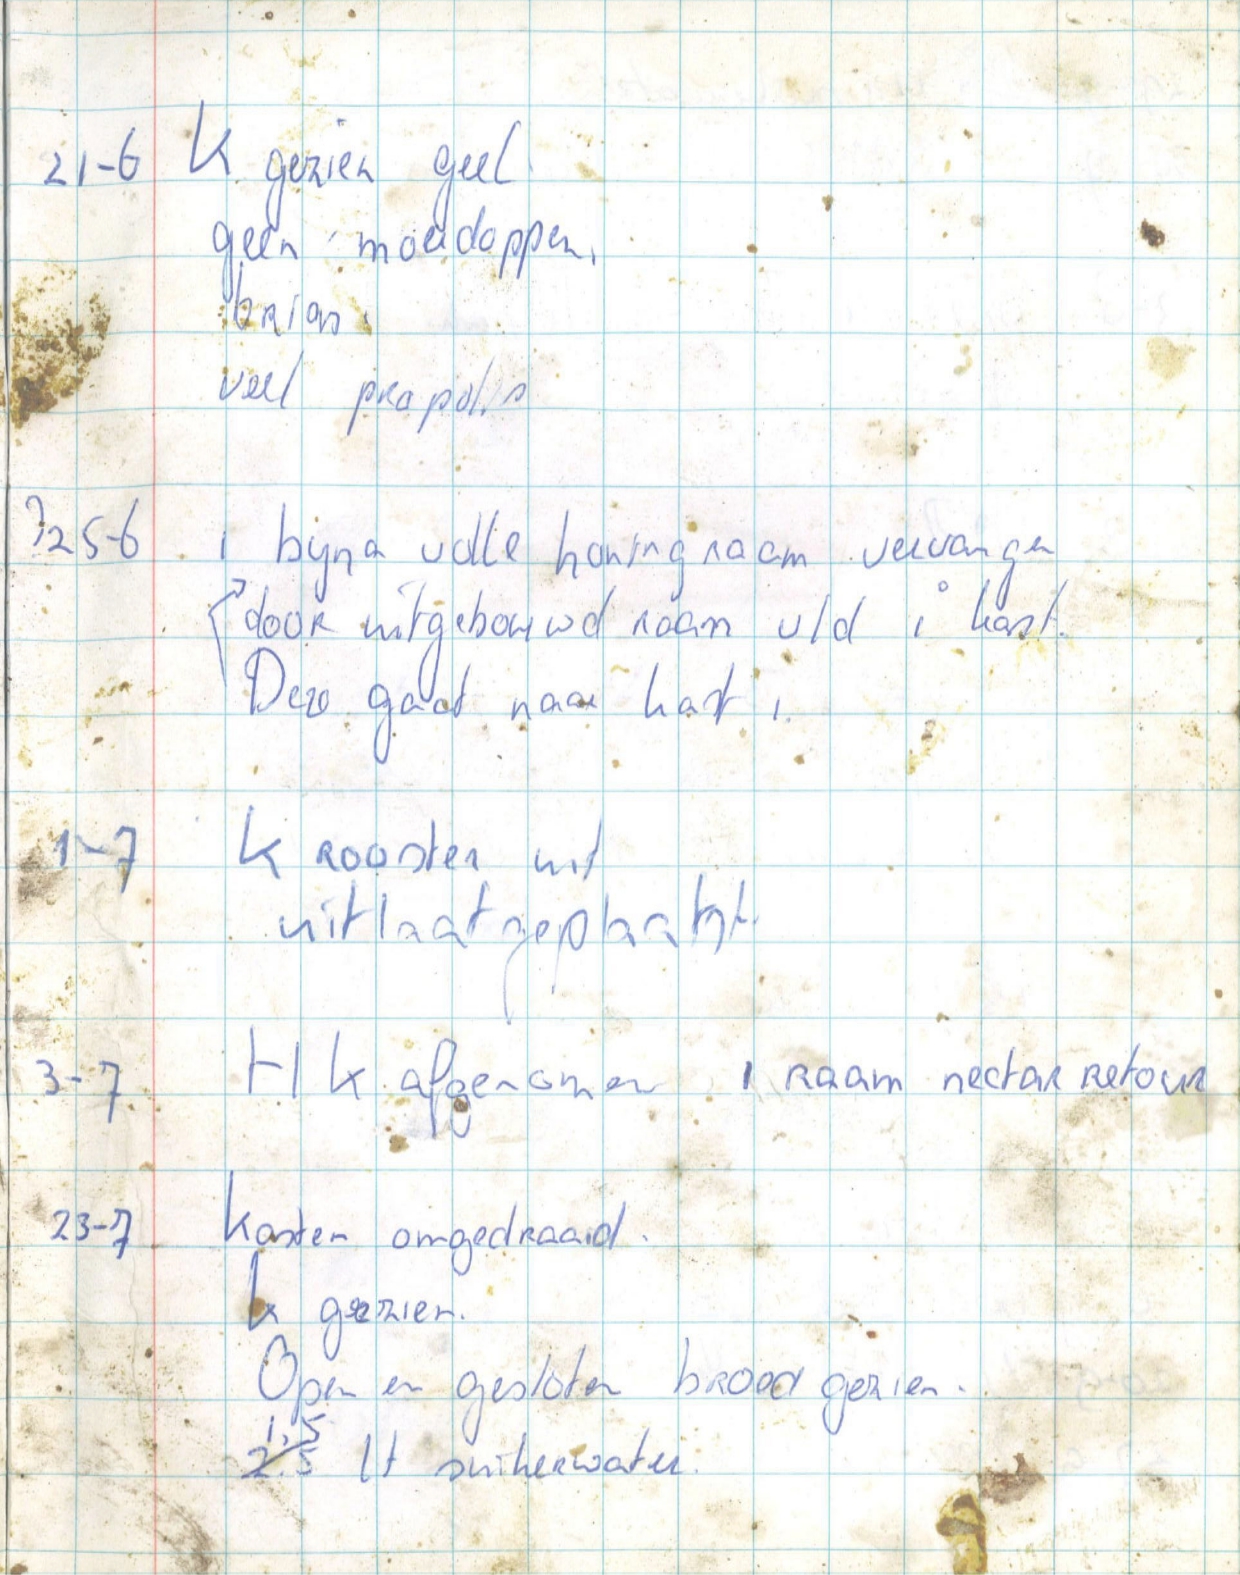 21-6 K gezien geel.
geen moerdoppen.
brias.
veel propolis
?25-6 1 bijna volle honingraam vervangen
door uitgebouwd raam v/d 1° kast.
Deze gaat naar kast 1.
1-7 K rooster uit
uitlaat geplaatst.
3-7 HK afgenomen 1 raam nectar retour
23-7 kasten omgedraaid.
k gezien.
Open en gesloten broed gezien.
1,5
2.5 lt suikerwater.